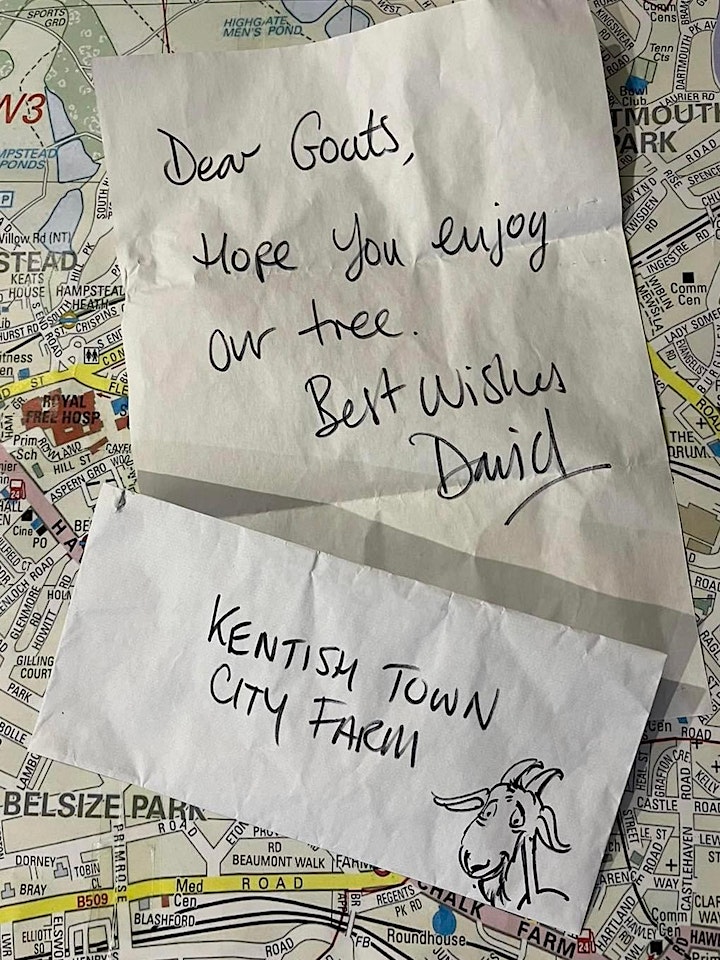 Dear Goats,
Hope you enjoy
our tree.
Best Wishes
David
KENTISH TOWN
CITY FARM
SPORTS
GRD
HIGHGATE
MEN'S POND
WEST
Comm
Cens
KINGSWEAR
ROAD
Tenn
Cts
DARTMOUTH PK AV
Bowl
Club
LAURIER RD
PARK
ROAD
W3
P
Willow Rd (NT)
KEATS
HOUSE
HAMPSTEAD
HEATH
ST CRISPINS
S END ROAD
ROYAL
FREE HOSP.
Prim
Sch
ROWLAND
HILL ST
ASPERN GRO
24
Cine
PO
GLENMORE
RD
HOWITT
RD
GILLING
COURT
PARK
WYND
RISE
SPENCER
INGESTRE RD
Comm
Cen
LADY SOMERSET
THE
ROAD
Cen
ROAD
GRAFTON CRE
CASTLE
ROAD
CASTLEHAVEN
ROAD
WAY
HARTLAND
Comm
Cen
BELSIZE PARK
ROAD
PRIMROSE
RD
BEAUMONT WALK
FARM
DORNEY
TOBIN
CL
BRAY
B509
Med
Cen
ROAD
BLASHFORD
ELLIOTT
SQ
REGENTS
PK RD
CHALK
FARM
24
Roundhouse
FB
ROAD